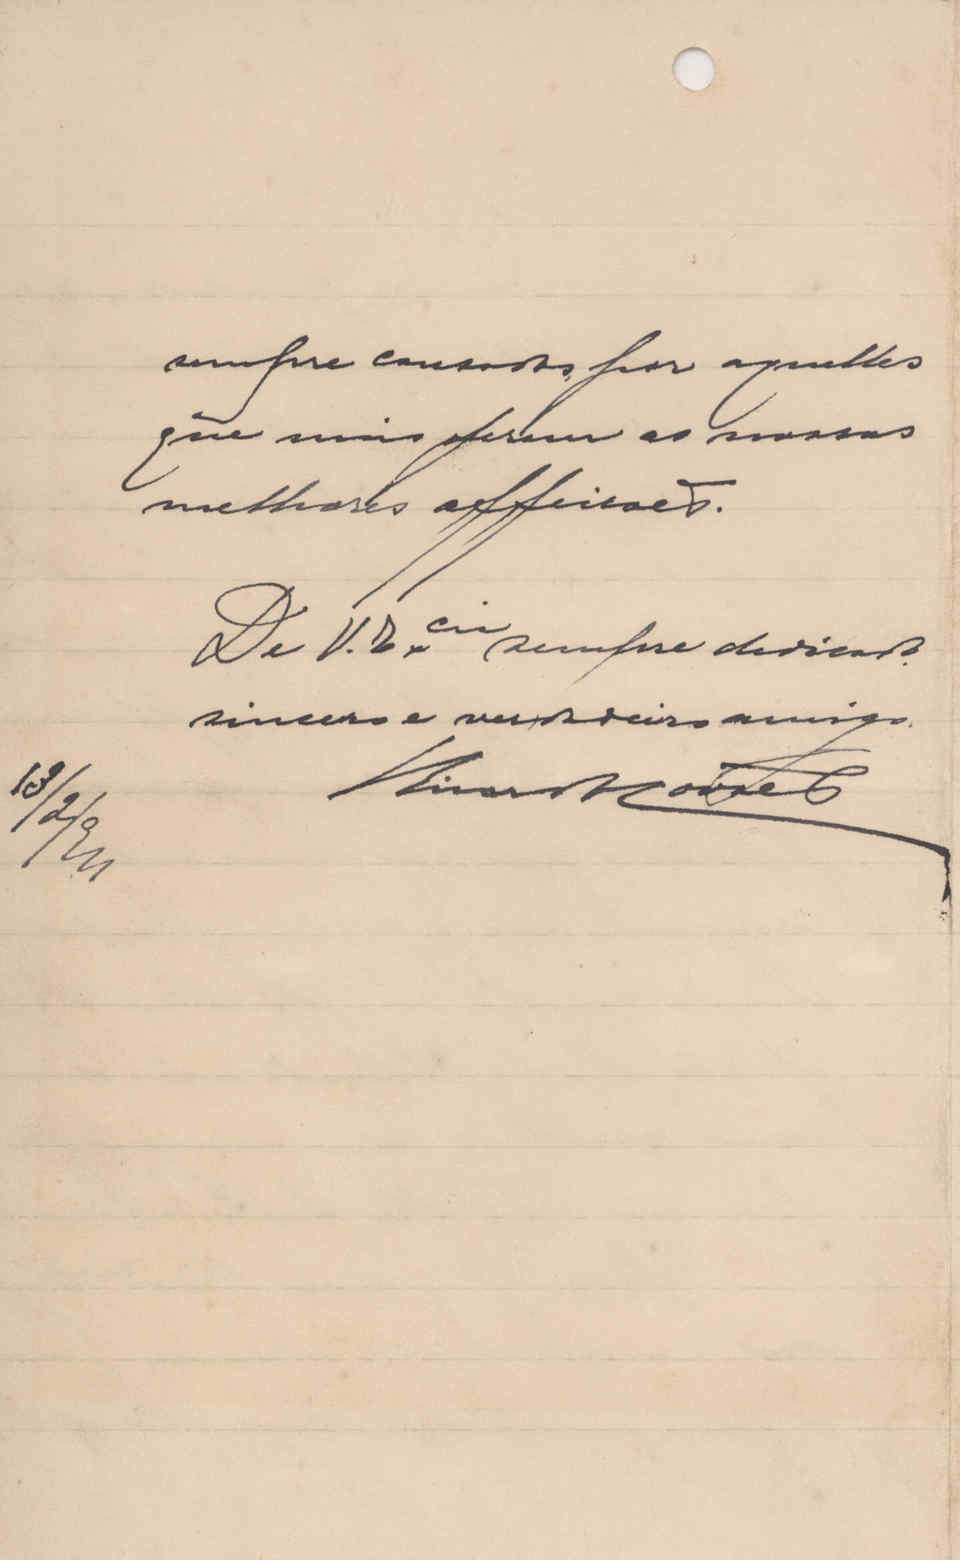 sempre causados por aquelles
que mais ferem as nossas
melhores affeições.
De V. Ex.cia sempre dedicado
sincero e verdadeiro amigo.
13/2/911